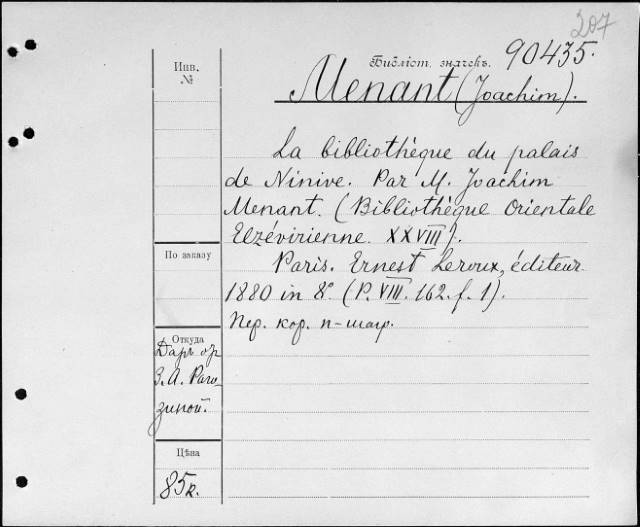 207
Библіот. значекъ. 90435.
Menant (Joachim).
Инв.
№
La bibliothèque du palais
de Ninive. Par M. Joachim
Menant. (Bibliothèque Orientale
Elzévirienne. XXVIII).
Paris. Ernest Leroux, éditeur.
1880 in 8º. (P. VIII. 162. f. 1).
Пер. кор. п-шагр.
По заказу
Откуда
Даръ от
З. А. Раго-
зиной.
Цѣна
85к.